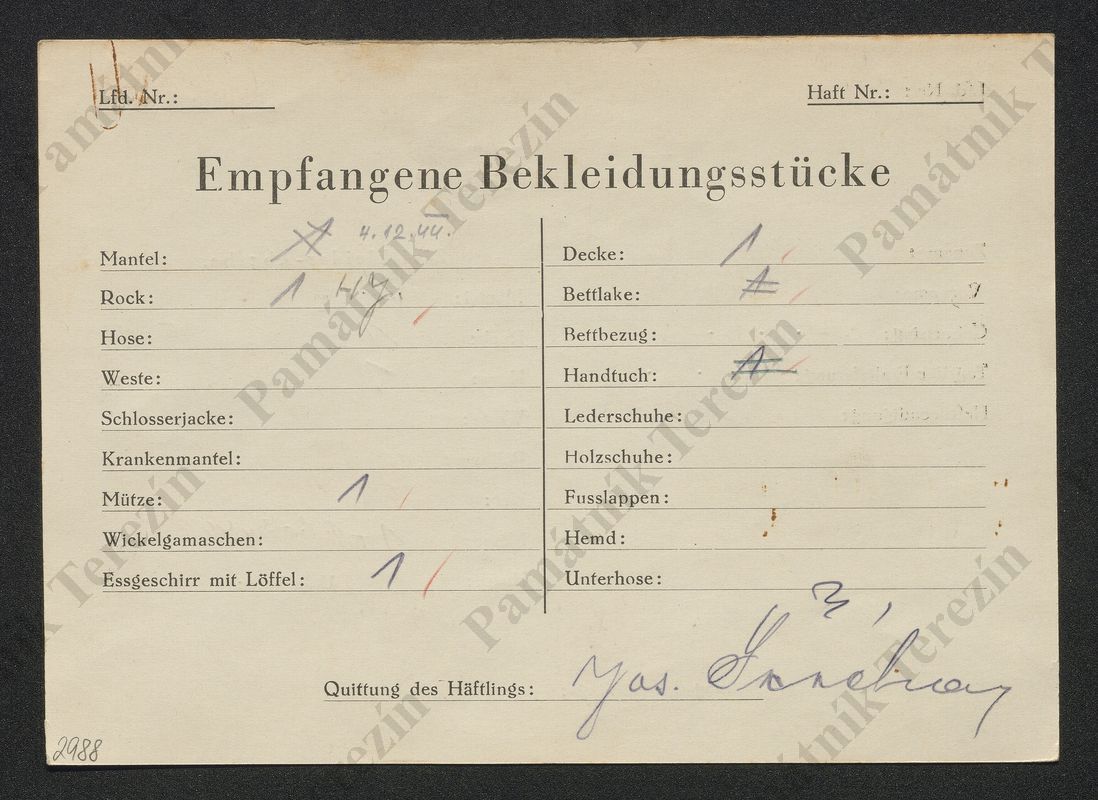 Lfd. Nr.:
Haft Nr.:
Empfangene Bekleidungsstücke
Mantel: 1 4.12.44.
Rock: 1
Hose:
Weste:
Schlosserjacke:
Krankenmantel:
Mütze: 1
Wickelgamaschen:
Essgeschirr mit Löffel: 1
Decke: 1
Bettlake: 1
Bettbezug:
Handtuch: 1
Lederschuhe:
Holzschuhe:
Fusslappen:
Hemd:
Unterhose:
Quittung des Häftlings: Jos.
2988
Památník Terezín